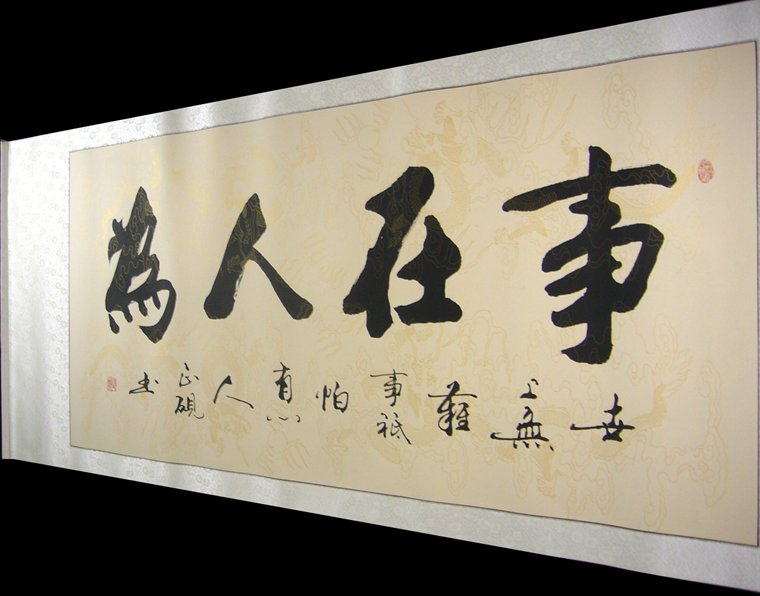 事在人為
世上無難事祇怕有心人 正硯书